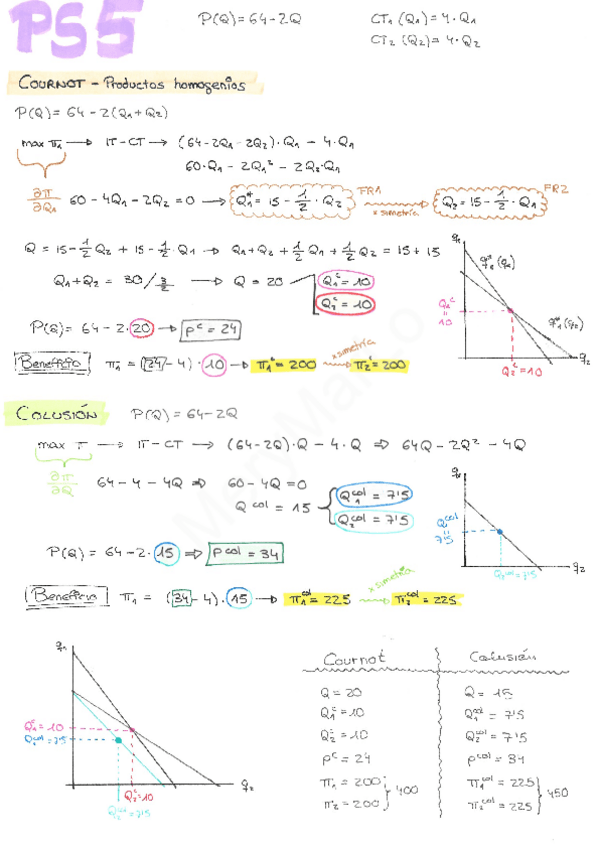 PS5
P(Q) = 64 - 2Q
CT₁ (Q₁) = 4·Q₁
CT₂ (Q₂) = 4·Q₂
COURNOT - Productos homogenios
P(Q) = 64 - 2(Q₁ + Q₂)
max π₁ → IT - CT → (64 - 2Q₁ - 2Q₂)·Q₁ - 4·Q₁
60·Q₁ - 2Q₁² - 2Q₂·Q₁
∂π/∂Q₁ 60 - 4Q₁ - 2Q₂ = 0 → Q₁* = 15 - 1/2·Q₂ FR1 x simetría → Q₂ = 15 - 1/2·Q₁ FR2
Q = 15 - 1/2 Q₂ + 15 - 1/2·Q₁ → Q₁ + Q₂ + 1/2 Q₁ + 1/2 Q₂ = 15 + 15
Q₁ + Q₂ = 30 / 3/2 → Q = 20
Q₁ᶜ = 10
Q₂ᶜ = 10
P(Q) = 64 - 2·20 → Pᶜ = 24
Beneficio π₁ = (24 - 4)·10 → π₁ᶜ = 200 x simetría → π₂ᶜ = 200
q₁
q₂
Q₁ᶜ = 10
Q₂ᶜ = 10
COLUSIÓN P(Q) = 64 - 2Q
max π → IT - CT → (64 - 2Q)·Q - 4·Q ⇒ 64Q - 2Q² - 4Q
∂π/∂Q 64 - 4 - 4Q ⇒ 60 - 4Q = 0
Q^col = 15
Q₁^col = 7'5
Q₂^col = 7'5
P(Q) = 64 - 2·15 ⇒ P^col = 34
Beneficio π₁ = (34 - 4)·15 → π₁^col = 225 x simetría → π₂^col = 225
q₁
q₂
7'5
q₁
Q₁ᶜ = 10
q₂
Q₂ᶜ = 10
Cournot Colusión
Q = 20 Q = 15
Q₁ᶜ = 10 Q₁^col = 7'5
Q₂ᶜ = 10 Q₂^col = 7'5
Pᶜ = 24 P^col = 34
π₁ = 200 π₁^col = 225
400 450
π₂ = 200 π₂^col = 225